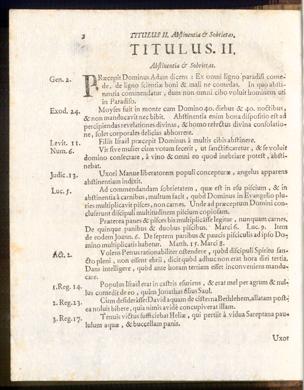 2 TITULUS II. Abstinentia & Sobrietas.
TITULUS. II.
Abstinentia & Sobrietas.
Gen. 2. PRæcepit Dominus Adam dicens: Ex omni ligno paradisi come
de, de ligno scientiæ boni & mali ne comedas. In quo absti-
nentia commendatur, dum non omni cibo voluit hominem uti
in Paradiso.
Exod. 24. Moyses fuit in monte cum Domino 40. diebus & 40. noctibus,
& non manducavit nec bibit. Abstinentia enim bona dispositio est ad
percipiendas revelationes divinas, & homo refectus divina consolatio-
ne, solet corporales delicias abhorrere.
Levit. 11. Filiis Israël præcepit Dominus à multis cibis abstinere.
Num. 6. Vir sive mulier cum votum fecerit, ut sanctificentur, & se voluit
domino consecrare, à vino & omni eo quod inebriare potest, absti-
nebat.
Judic. 13. Uxori Manue liberatorem populi concepturæ, angelus apparens
abstinentiam indixit.
Luc. 5. Ad commendandam sobrietatem, quæ est in esu piscium, & in
abstinentia à carnibus, multum facit, quod Dominus in Evangelio plu-
ries multiplicavit pisces, non carnes. Unde ad præceptum Domini con-
cluserunt discipuli multitudinem piscium copiosam.
Præterea panes & pisces bis multiplicasse legitur, nunquam carnes.
De quinque panibus & duobus piscibus. Marci 6. Luc. 9. Item
de eodem Joann. 6. De septem panibus & paucis pisciculis ad ipso Do-
mino multiplicatis habetur. Matth. 15. Marci 8.
Act. 2. Volens Petrus rationabiliter ostendere, quod discipuli Spiritu san-
cto pleni, non essent ebrii, dicit quod adhuc non erat hora diei tertia.
Dans intelligere, quod ante horam tertiam esset inconveniens mandu-
care.
1. Reg. 14. Populus Israël erat in castris esuriens, & erat mel per agrum & nul-
lus comedit de eo, quàm Jonathas filius Saul.
2. Reg. 23. Cum desiderasset David aquam de cisterna Bethlehem, allatam post-
ea noluit bibere, quia nimis avidè concupiverat illam.
3. Reg. 17. Tenuis victus sufficiebat Heliæ, qui petiit à vidua Sareptana pau-
lulum aquæ, & buccellam panis.
Uxor